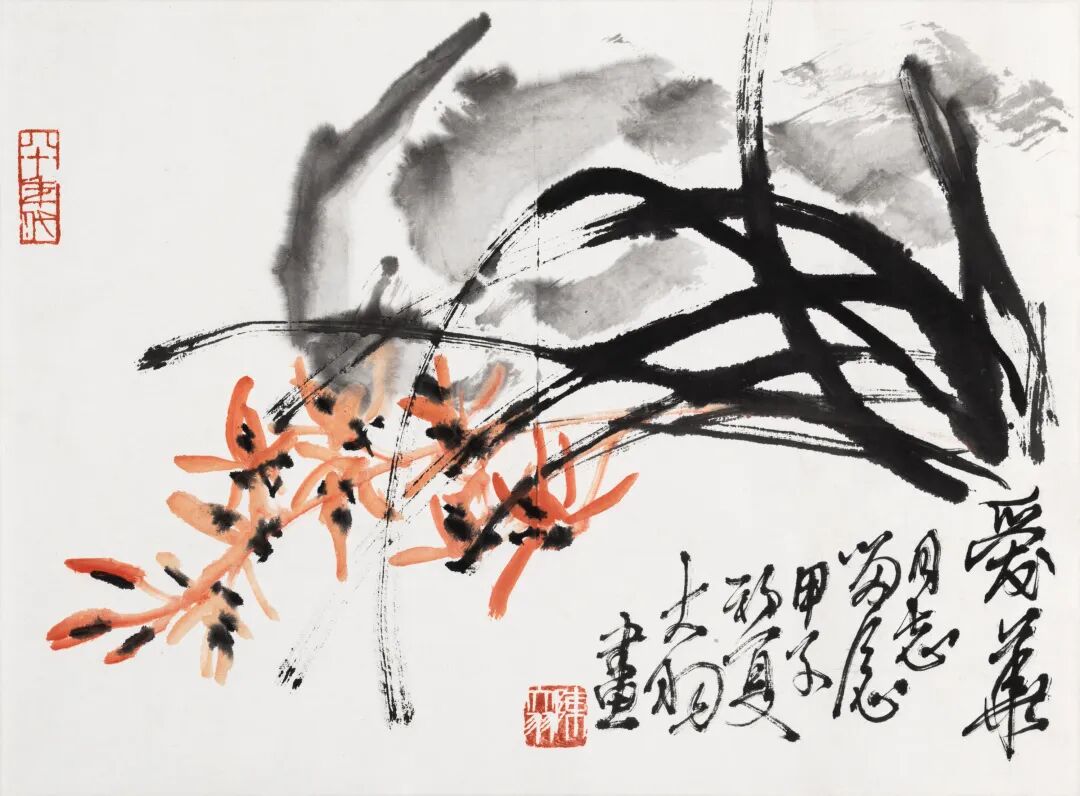 愛華
同志
留念
甲子
初夏
大羽
畫
陳大羽
八十年代